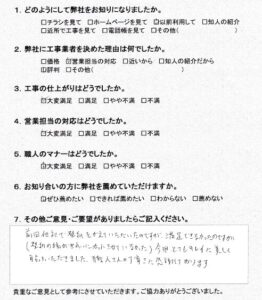 1. どのようにして弊社をお知りになりましたか。
□チラシを見て □ホームページを見て ☑以前利用して □知人の紹介
□近所で工事を見て □電話帳を見て □その他( )
2. 弊社に工事業者を決めた理由は何でしたか。
□価格 ☑営業担当の対応 □近いから □知人の紹介だから
☑評判 □その他( )
3. 工事の仕上がりはどうでしたか。
☑大変満足 □満足 □やや不満 □不満
4. 営業担当の対応はどうでしたか。
☑大変満足 □満足 □やや不満 □不満
5. 職人のマナーはどうでしたか。
☑大変満足 □満足 □やや不満 □不満
6. お知り合いの方に弊社を薦めていただけますか。
☑ぜひ薦めたい □できれば薦めたい □わからない □薦めない
7. その他ご意見・ご要望がありましたらご記入ください。
前回他社で
今回とてもキレイに
職人さんの丁寧さに感謝しております
貴重なご意見として参考にさせていただきます。ご協力ありがとうございました。